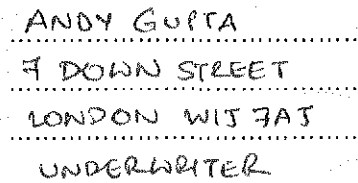 ANDY GUPTA
7 DOWN STREET
LONDON W1J 7AJ
UNDERWRITER